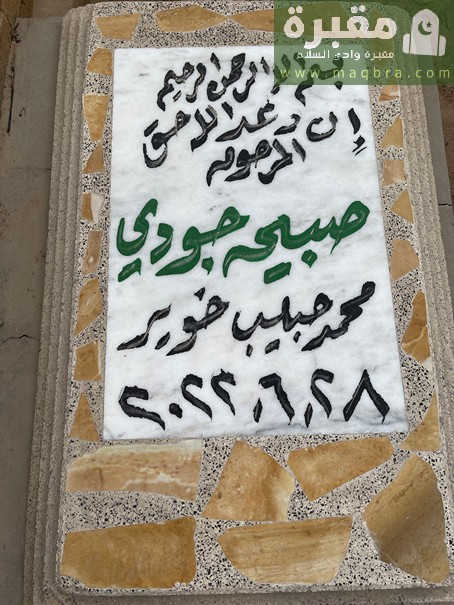 مقبرة
مقبرة وادي السلام
www.maqbra.com
بسم الله الرحمن الرحيم
إن وعد الله حق
المرحومه
صبيحه جودي
محمد حبيب خوير
٢٠٢٢.٦.٢٨